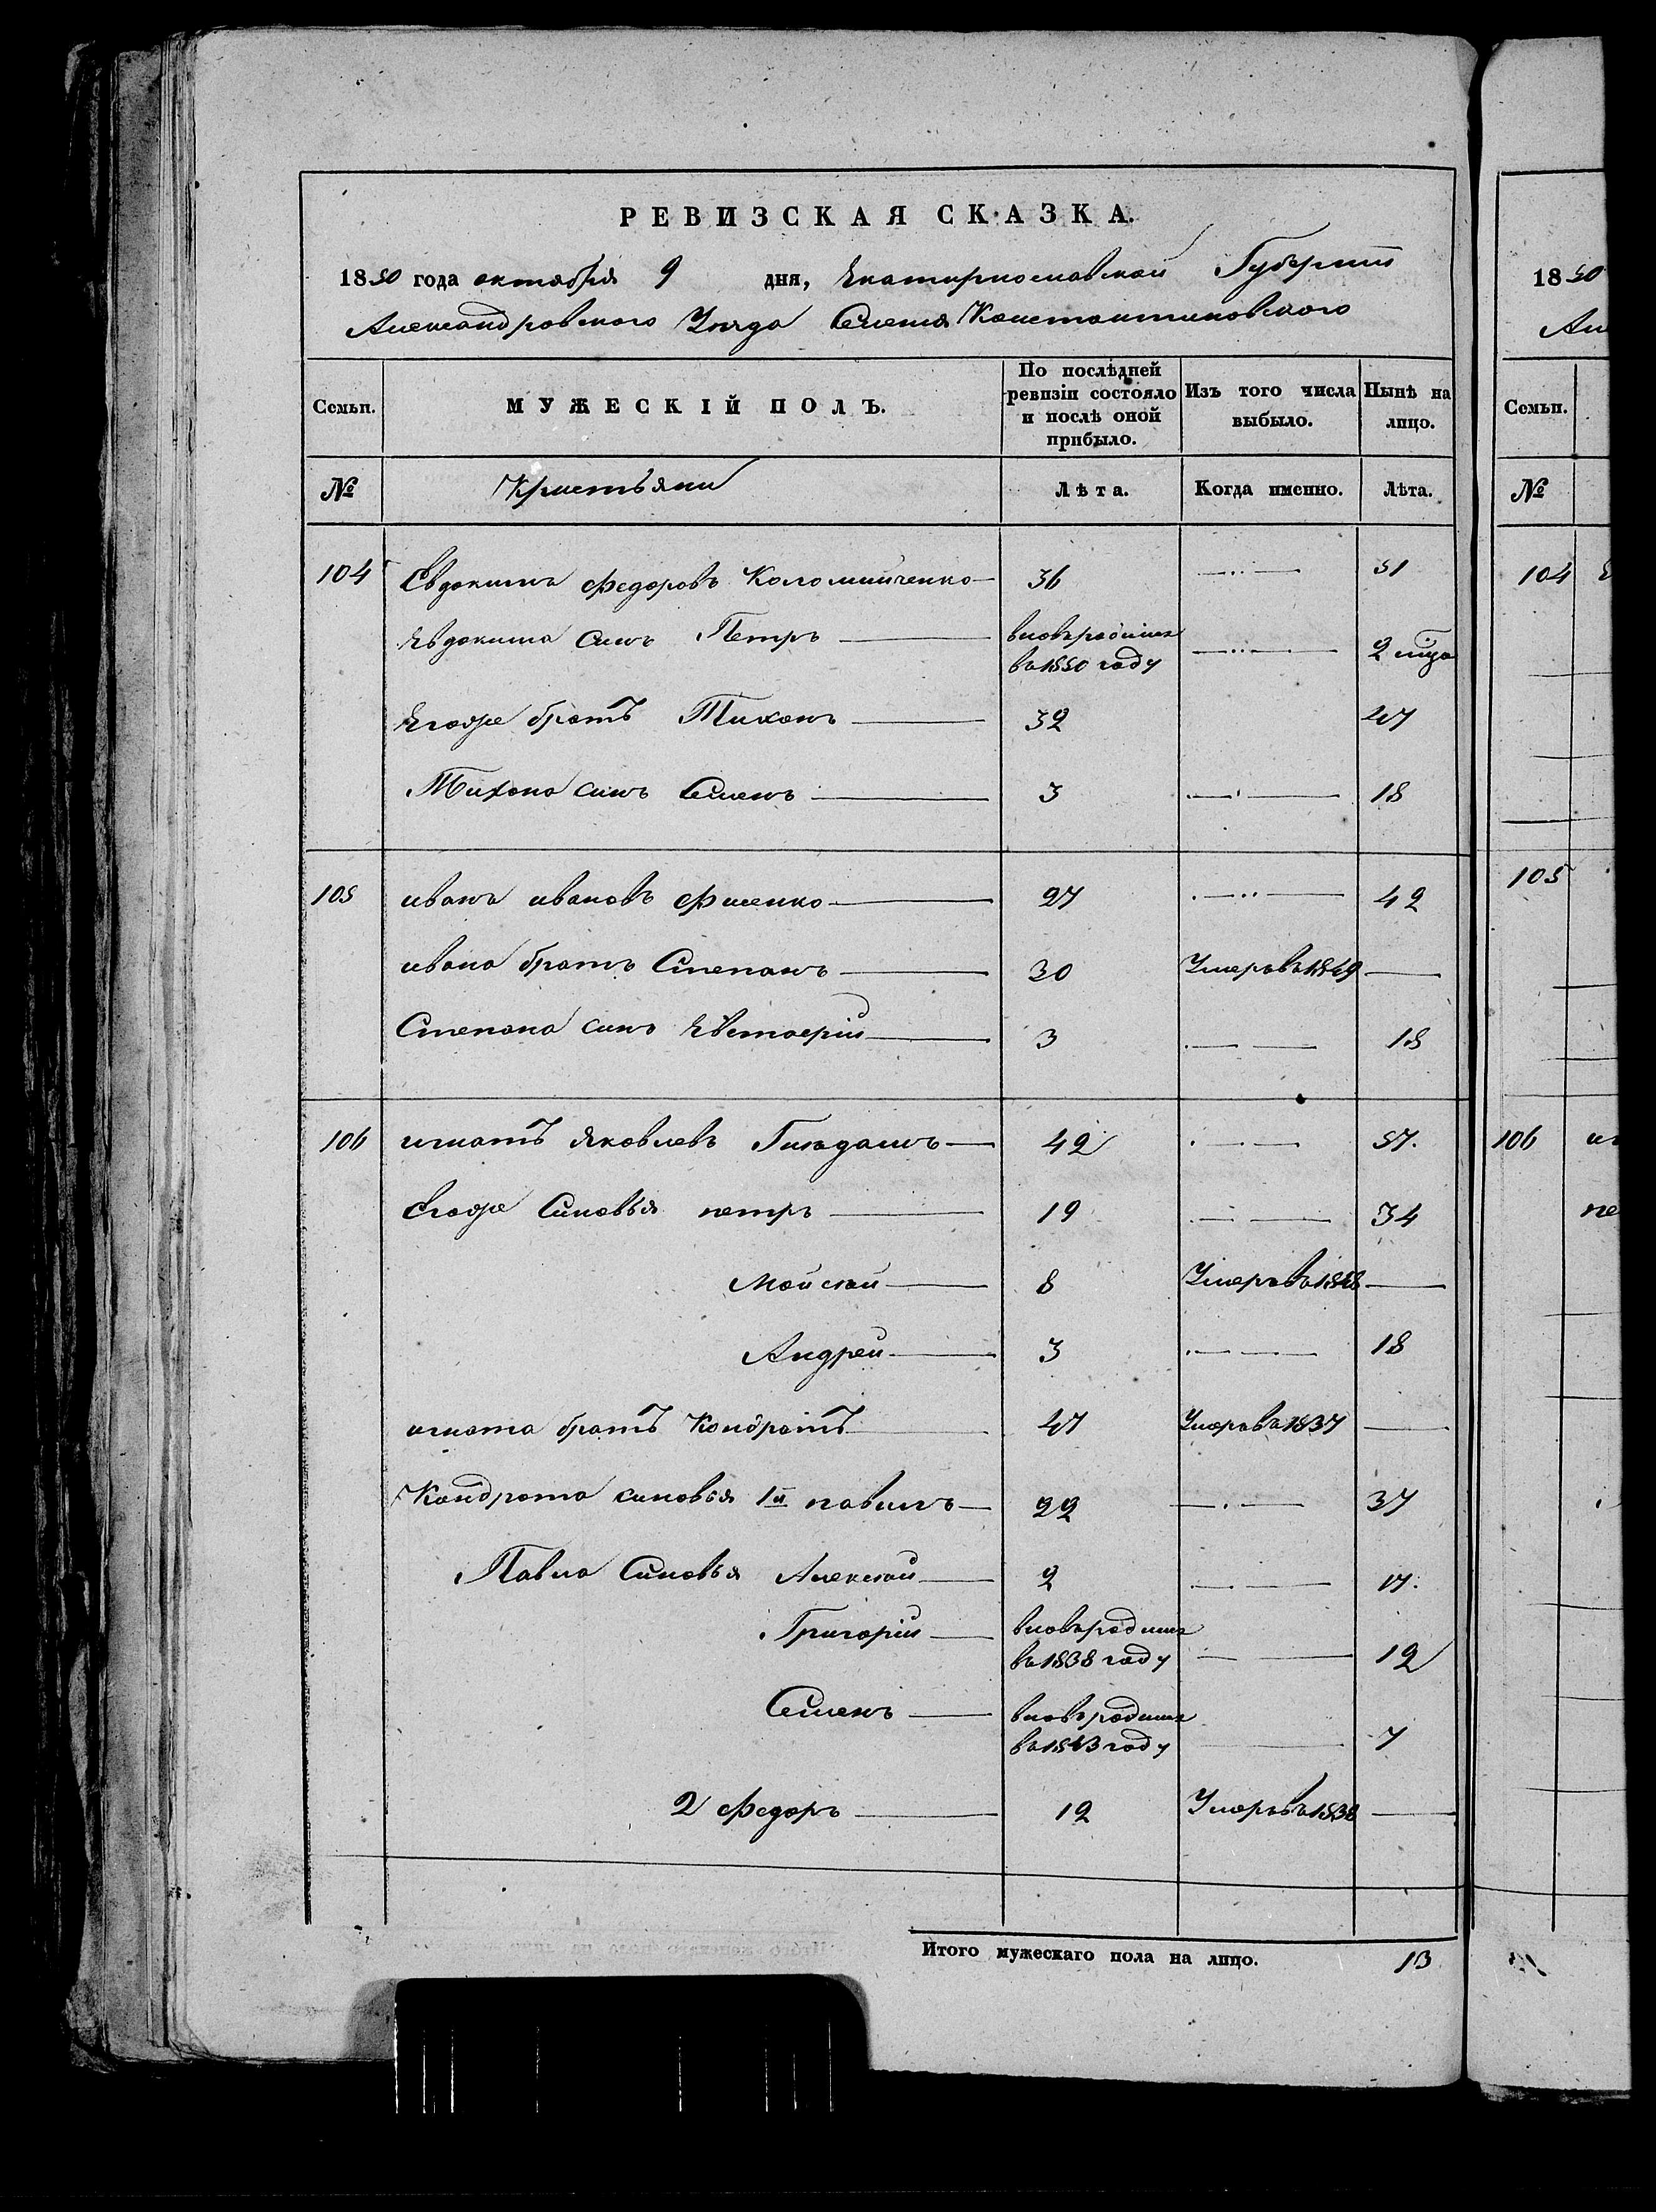 РЕВИЗСКАЯ СКАЗКА.
1850 года октября 9 дня, Екатеринославской Губернии
Александровского Уезда Селения Константиновского
Семьи. МУЖЕСКІЙ ПОЛЪ. По послѣдней ревизіи состояло и послѣ оной прибыло. Изъ того числа выбыло. Нынѣ на лицо.
№ Кристьяни Лѣта. Когда именно. Лѣта.
104 Евдокимъ Федоровъ Коломийченко 36 51
Евдокима Синъ Петръ вновърадився въ 1850 году 2 мѣца
Егоже братъ Тихонъ 32 47
Тихона синъ Семенъ 3 18
105 иванъ ивановъ Фисенко 27 42
ивана братъ Степанъ 30 Умеръ въ 1849
Степана синъ 3 18
106 игнатъ Яковлевъ 42 57.
Егоже Синовья петръ 19 34
Мойсей 8 Умеръ въ 1848
Андрей 3 18
игната братъ Кондратъ 47 Умеръ въ 1837
Кондрата синовья 1й павилъ 22 37
Павла Синовья Алексей 2 17.
Григорій вновърадився въ 1838 году 12
Семенъ вновърадився въ 1843 году 7
2 Федоръ 12 Умеръ въ 1838
Итого мужескаго пола на лицо. 13
1850
Семьи.
№
104
105
106